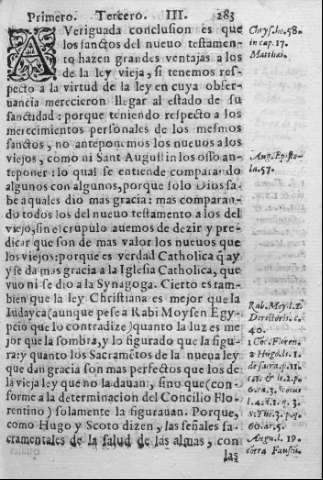 Primero. Tercero. III. 283
AVeriguada conclusion es que
los sanctos del nueuo testamen-
to hazen grandes ventajas a los
de la ley vieja, si tenemos res-
pecto a la virtud de la ley en cuya obser-
uancia merecieron llegar al estado de su
sanctidad: porque teniendo respecto a los
merecimientos personales de los mesmos
sanctos, no anteponemos los nueuos a los
viejos, como ni Sant Augustin los osso an-
teponer: lo qual se entiende comparando
algunos con algunos, porque solo Dios sa-
be a quales dio mas gracia: mas comparan-
do todos los del nueuo testamento a los del
viejo, sin escrupulo auemos de dezir y pre-
dicar que son de mas valor los nueuos que
los viejos: porque es verdad Catholica q̃ ay
y se da mas gracia a la Iglesia Catholica, que
vuo ni se dio a la Synagoga. Cierto es tam-
bien que la ley Christiana es mejor que la
Iudayca (aunque pese a Rabi Moysen Egy-
pcio que lo contradize) quanto la luz es me
jor que la sombra, y lo figurado que la figu-
ra: y quanto los Sacramẽtos de la nueua ley
que dan gracia son mas perfectos que los de
la vieja ley que no la dauan, sino que (con-
forme a la determinacion del Concilio Flo-
rentino) solamente la figurauan. Porque,
como Hugo y Scoto dizen, las señales sa-
cramentales de la salud de las almas, con
las
Chrys. ho. 58.
in cap. 17.
Matthæi.
Aug. Episto-
la. 57.
Rab. Moy. l. 2.
Directoris. c.
40.
1 Cõc. Floren.
2 Hugo li. 1.
de sacra. p. 11.
Augu. l. 19.
cõtra Faustũ.